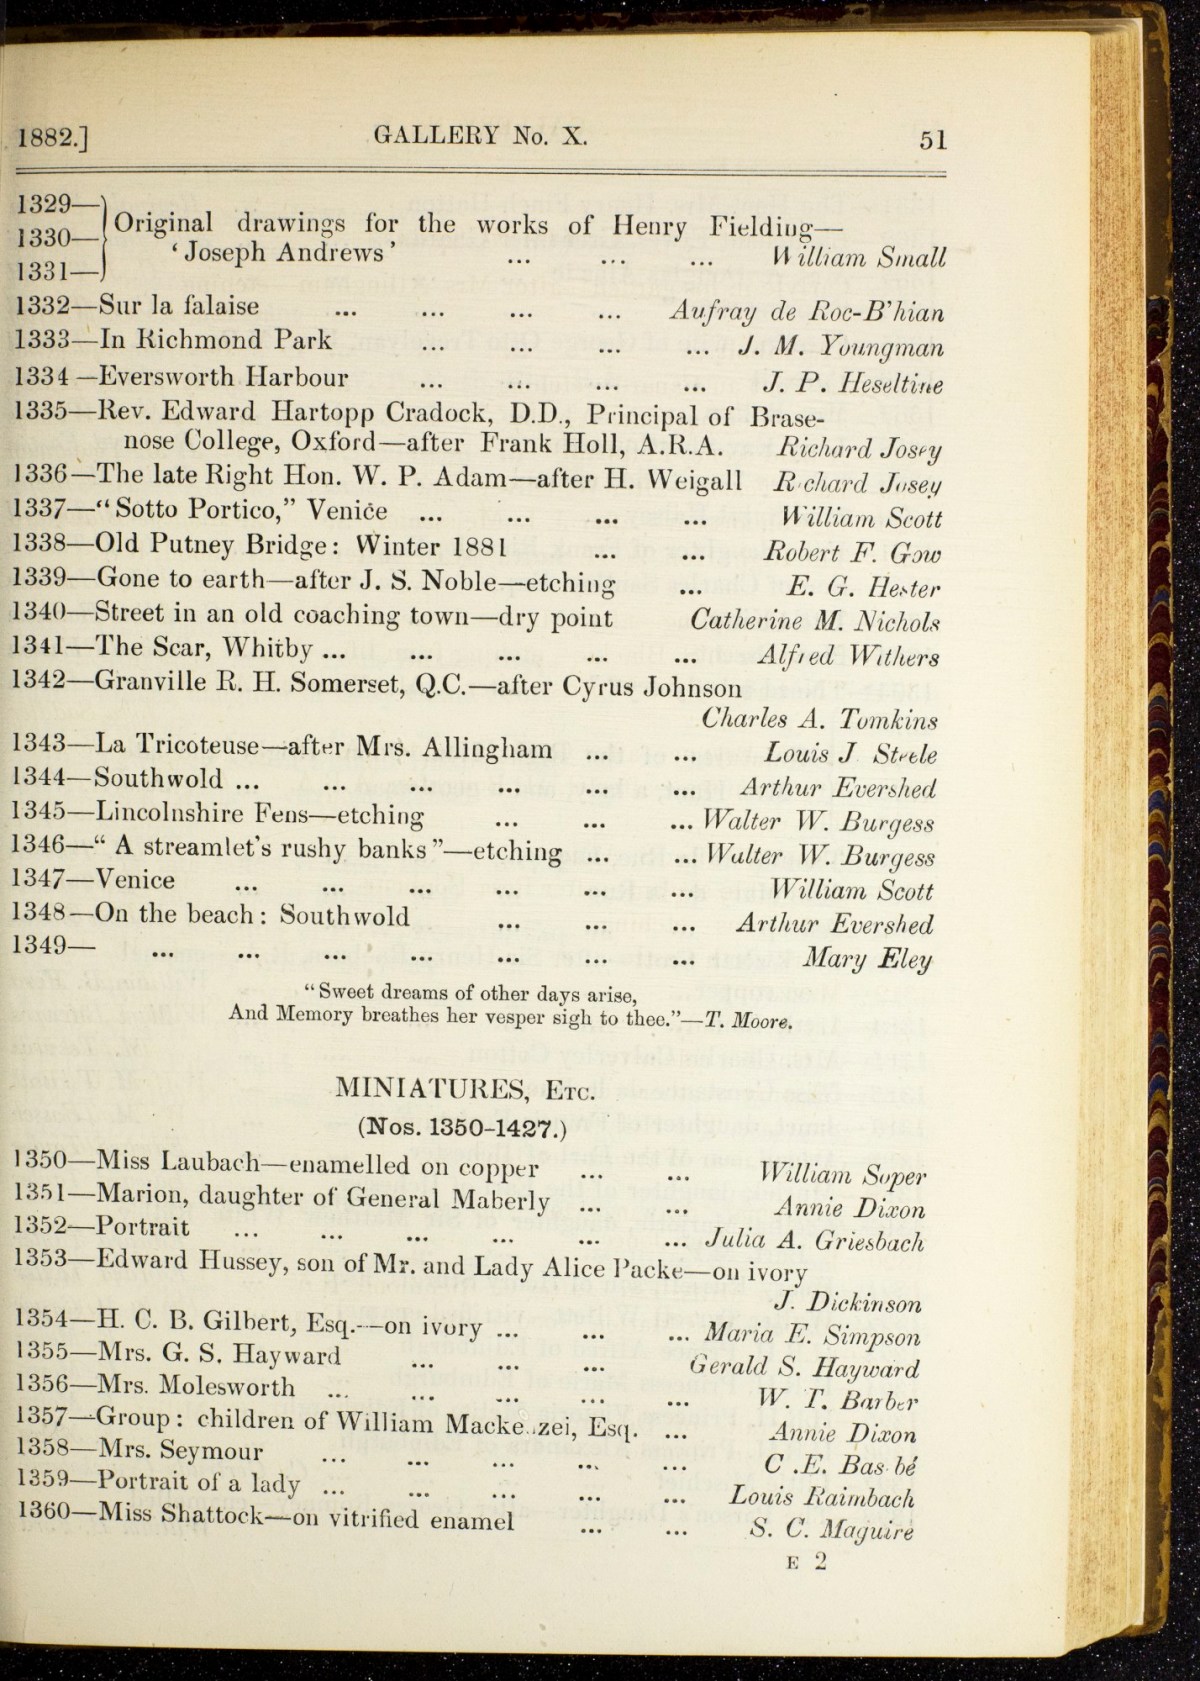 1882.] GALLERY No. X. 51
1329—
1330— Original drawings for the works of Henry Fielding—
1331— ‘Joseph Andrews’ ... ... ... William Small
1332—Sur la falaise ... ... ... ... Aufray de Roc-B'hian
1333—In Richmond Park ... ... ... ... J. M. Youngman
1334—Eversworth Harbour ... ... ... ... J. P. Heseltine
1335—Rev. Edward Hartopp Cradock, D.D., Principal of Brase-
nose College, Oxford—after Frank Holl, A.R.A. Richard Josey
1336—The late Right Hon. W. P. Adam—after H. Weigall Richard Josey
1337—“Sotto Portico,” Venice ... ... ... ... William Scott
1338—Old Putney Bridge: Winter 1881 ... ... Robert F. Gow
1339—Gone to earth—after J. S. Noble—etching ... E. G. Hester
1340—Street in an old coaching town—dry point Catherine M. Nichols
1341—The Scar, Whitby ... ... ... ... ... Alfred Withers
1342—Granville R. H. Somerset, Q.C.—after Cyrus Johnson
Charles A. Tomkins
1343—La Tricoteuse—after Mrs. Allingham ... ... Louis J Steele
1344—Southwold ... ... ... ... ... ... Arthur Evershed
1345—Lincolnshire Fens—etching ... ... ... Walter W. Burgess
1346—“A streamlet's rushy banks”—etching ... ... Walter W. Burgess
1347—Venice ... ... ... ... ... ... William Scott
1348—On the beach: Southwold ... ... ... Arthur Evershed
1349— ... ... ... ... ... ... ... Mary Eley
“Sweet dreams of other days arise,
And Memory breathes her vesper sigh to thee.”—T. Moore.
MINIATURES, ETC.
(Nos. 1350-1427.)
1350—Miss Laubach—enamelled on copper ... ... William Soper
1351—Marion, daughter of General Maberly ... ... Annie Dixon
1352—Portrait ... ... ... ... ... ... Julia A. Griesbach
1353—Edward Hussey, son of Mr. and Lady Alice Packe—on ivory
J. Dickinson
1354—H. C. B. Gilbert, Esq.—on ivory ... ... ... Maria E. Simpson
1355—Mrs. G. S. Hayward ... ... ... Gerald S. Hayward
1356—Mrs. Molesworth ... ... ... ... ... W. T. Barber
1357—Group: children of William Mackenzei, Esq. ... Annie Dixon
1358—Mrs. Seymour ... ... ... ... ... C .E. Basébé
1359—Portrait of a lady ... ... ... ... ... Louis Raimbach
1360—Miss Shattock—on vitrified enamel ... ... S. C. Maguire
E 2